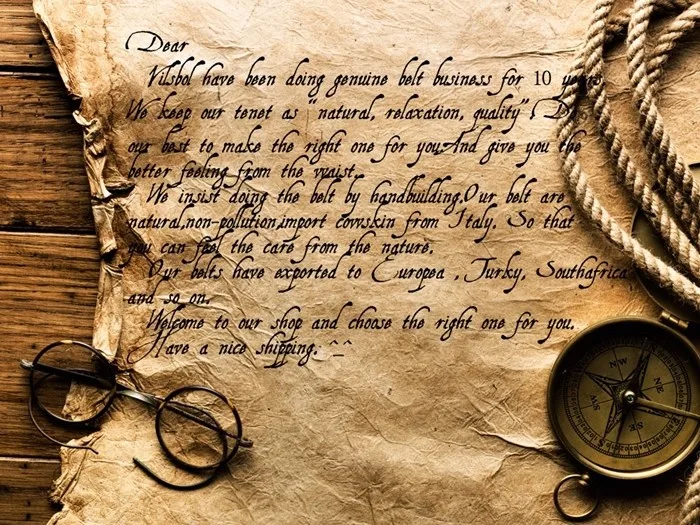 Dear
Vilsbol have been doing genuine belt business for 10 years
We keep our tenet as "natural, relaxation, quality". D
our best to make the right one for you.And give you the
better feeling from the waist.
We insist doing the belt by handbuilding.Our belt are
natural,non-pollution,import cowskin from Italy. So that
you can feel the care from the nature.
Our belts have exported to Europea , Turky, Southafrica
and so on.
Welcome to our shop and choose the right one for you.
Have a nice shipping. ^_^
NW
NE
SW
SE